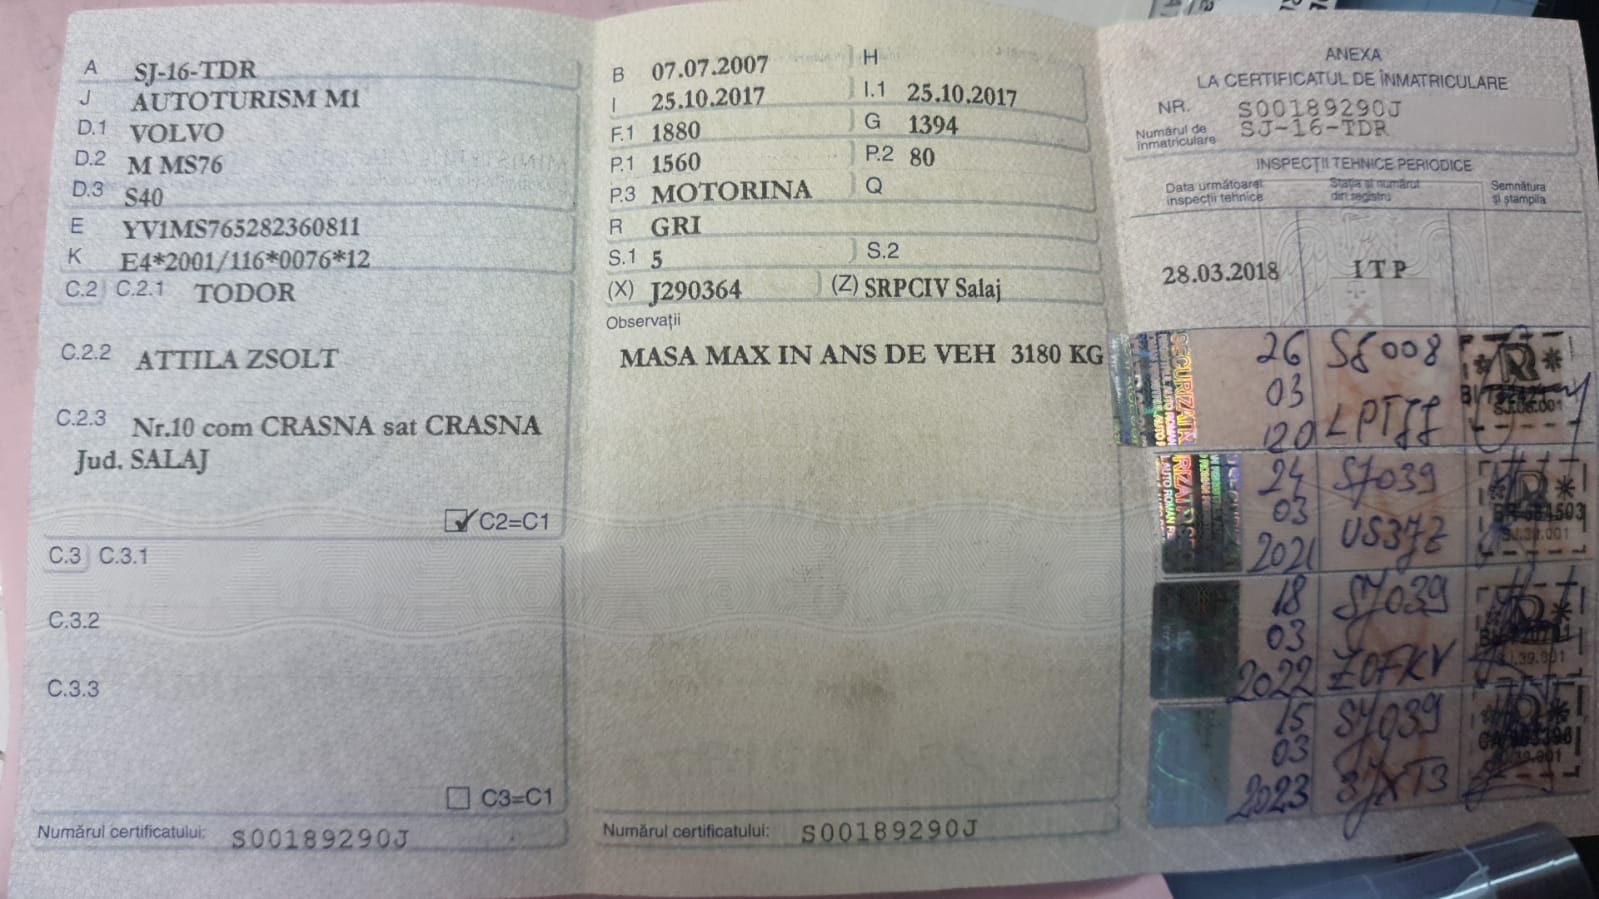 A SJ-16-TDR
J AUTOTURISM M1
D.1 VOLVO
D.2 M MS76
D.3 S40
E YV1MS765282360811
K E4*2001/116*0076*12
C.2 C.2.1 TODOR
C.2.2 ATTILA ZSOLT
C.2.3 Nr.10 com CRASNA sat CRASNA
Jud. SALAJ
C2=C1
C.3 C.3.1
C.3.2
C.3.3
C3=C1
Numărul certificatului: S00189290J
B 07.07.2007 H
I 25.10.2017 I.1 25.10.2017
F.1 1880 G 1394
P.1 1560 P.2 80
P.3 MOTORINA Q
R GRI
S.1 5 S.2
(X) J290364 (Z) SRPCIV Salaj
Observații
MASA MAX IN ANS DE VEH 3180 KG
Numărul certificatului: S00189290J
ANEXA
LA CERTIFICATUL DE ÎNMATRICULARE
NR. S00189290J
Numărul de înmatriculare SJ-16-TDR
INSPECȚII TEHNICE PERIODICE
Data următoarei inspecții tehnice
Stația și numărul din registru
Semnătura și ștampila
28.03.2018 ITP
26 SJ 008
03
LPTJJ
24 SJ039
03 US37Z
2021
18 SJ039
03
2022 ZOFKV
15 SJ039
03
2023 3JXT3